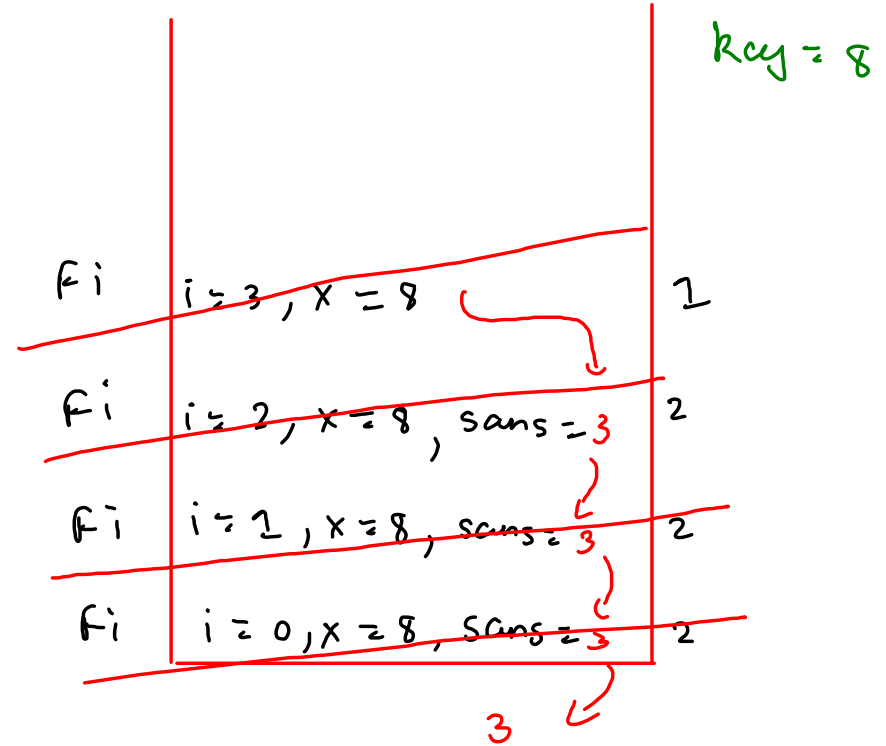 key = 8
Fi i = 3, x = 8 1
Fi i = 2, x = 8, sans = 3 2
Fi i = 1, x = 8, sans = 3 2
Fi i = 0, x = 8, sans = 3 2
3